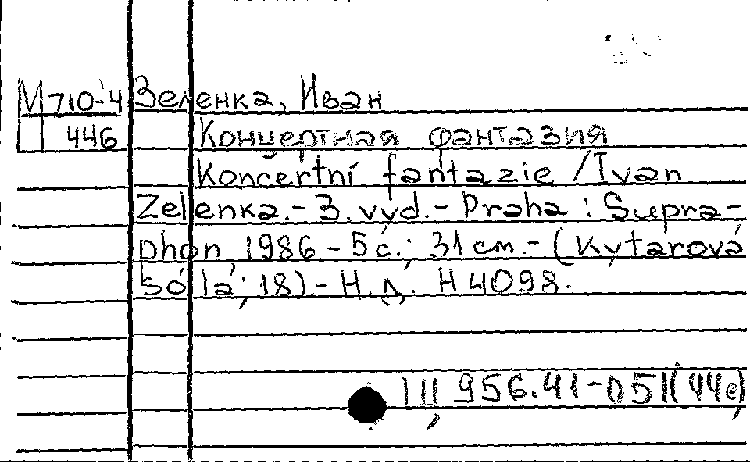 М 710-4 Зеленка, Иван
446 Концертная фантазия
Koncertní fantazie / Ivan
Zelenka. - 3. vyd. - Praha : Supra-
phon, 1986 - 5 с.; 31 cm. - (Kytarová
sóla; 18) - Н. д. H 4098.
Щ 956.41-051(44е)